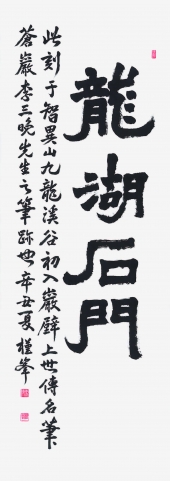 龍湖石門
此刻于智異山九龍溪谷初入巖壁上世傳名筆
蒼巖李三晩先生之筆跡也辛丑夏槿峯